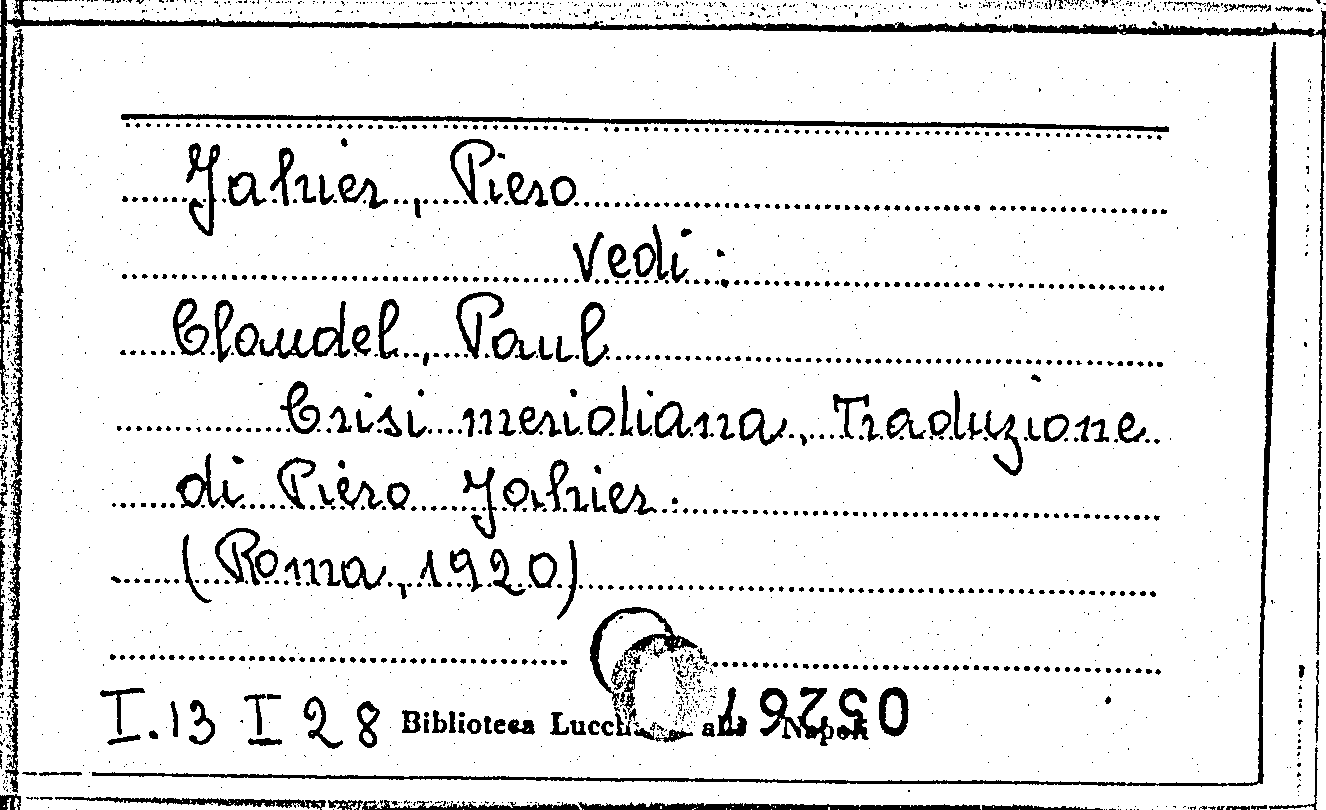 Jahier, Piero
vedi:
Claudel, Paul
Crisi meridiana, Traduzione
di Piero Jahier.
(Roma, 1920)
I.13 I 28 Biblioteca Napoli